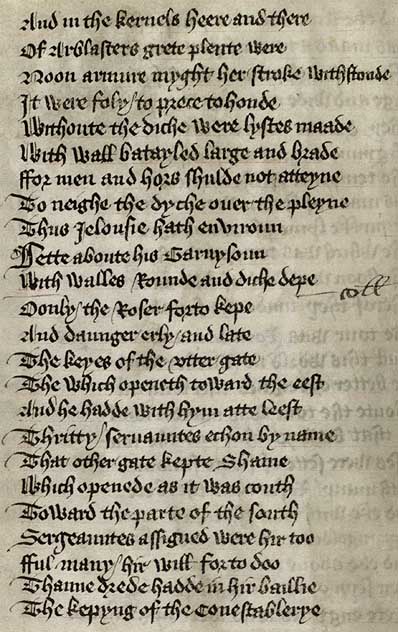 And in the kernels heere and there
Of Arblasters grete plente were
Noon armure myght her stroke withstonde
It were foly / to prece to honde
Withoute the diche were lystes maade
With wall batayled large and brade
ffor men and hors shulde not atteyne
To neighe the dyche over the pleyne
Thus Jelousie hath enviroun
Sette aboute his Garnysoun
With walles Rounde and diche depe
Oonly / the Roser forto kepe
And daunger erly / and late
The keyes of the utter gate
The which openeth toward the eest
And he hadde with hym atte leest
Thritty / servauntes echon by name
That other gate kepte Shame
Which openede as it was couth
Toward the parte of the south
Sergeauntes assigned were hir too
fful many / hir will forto doo
Thanne drede hadde in hir baillie
The kepyng of the Conestablerye